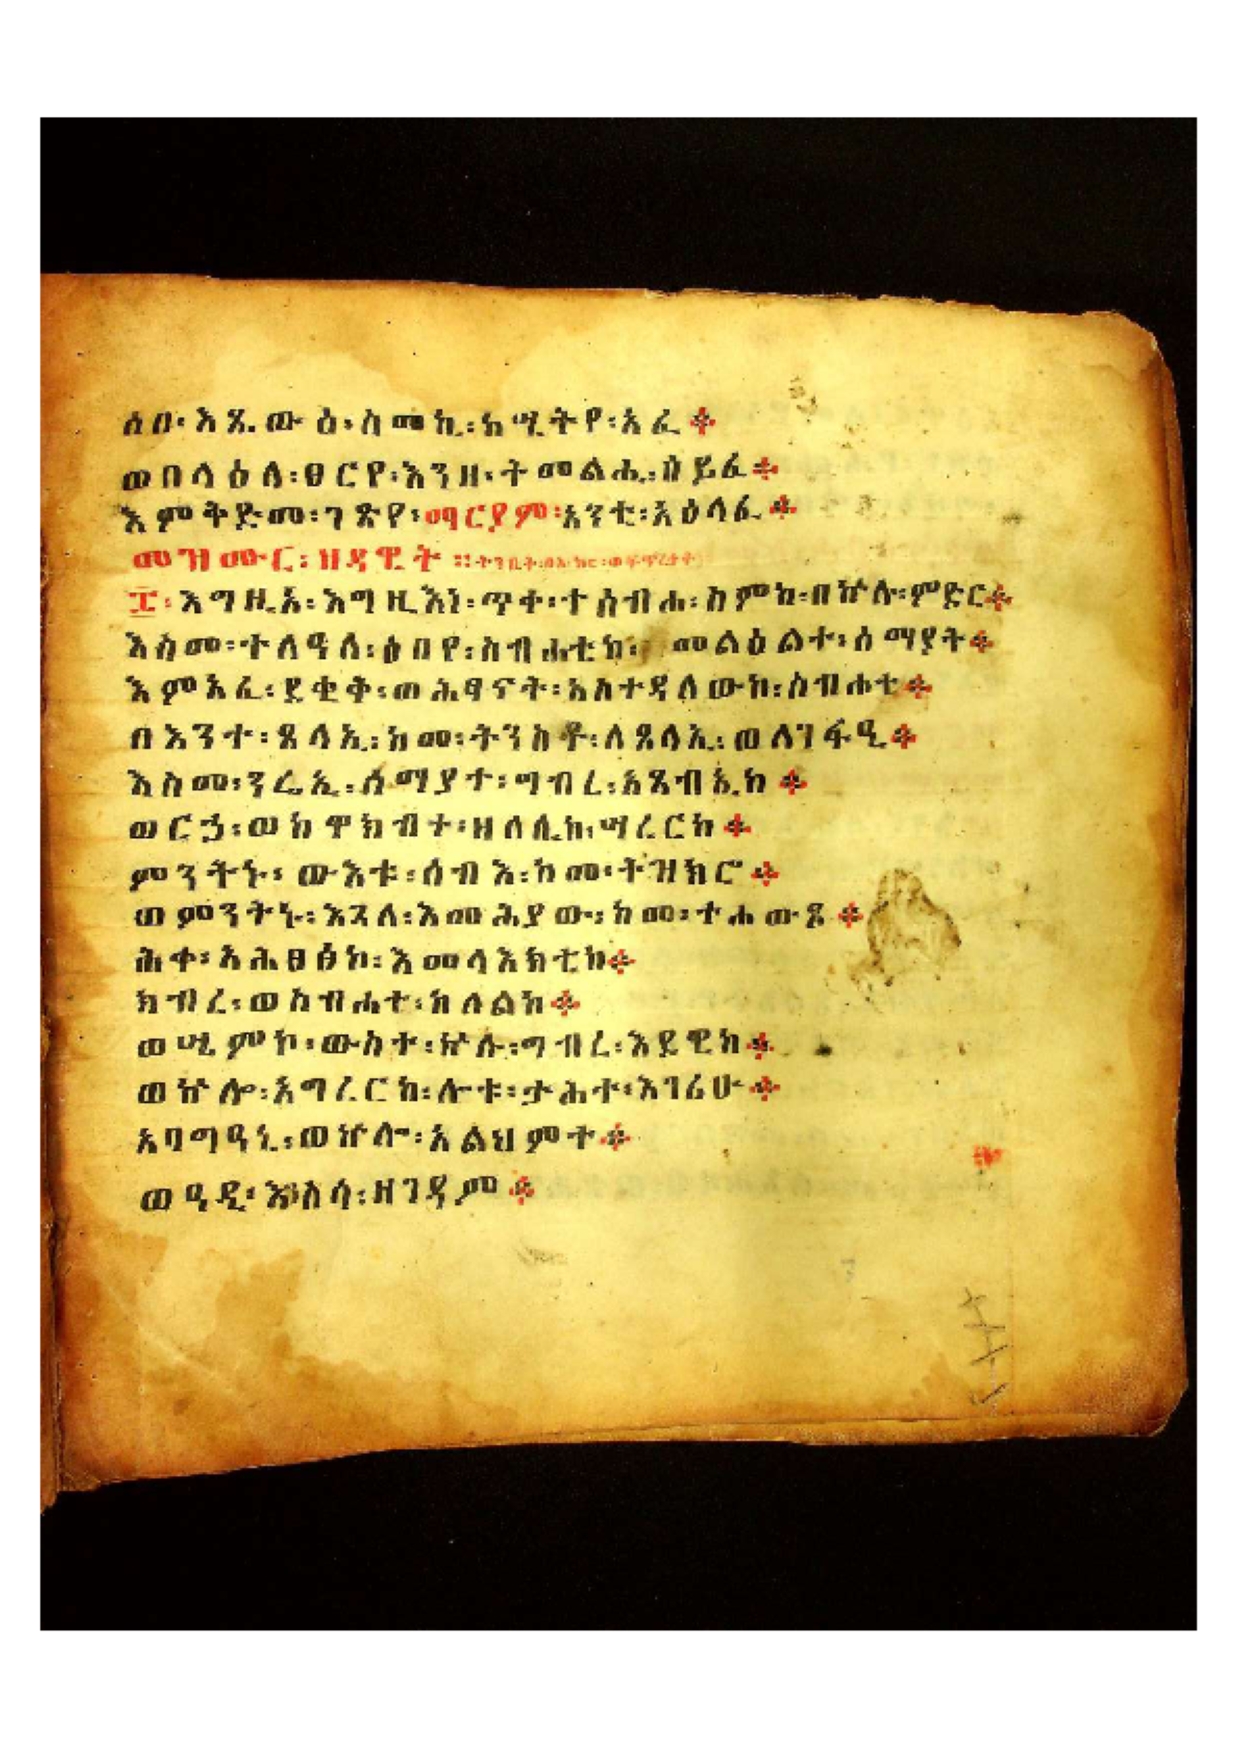 ሶበ፡ እጼውዕ፡ ስመኪ፡ ከሢትየ፡ አፈ።
ወበላዕለ፡ ፀርየ፡ እንዘ፡ ትመልሒ፡ ሰይፈ።
እምቅድመ፡ ገጽየ፡ ማርያም፡ አንቲ፡ አዕላፈ።
መዝሙር፡ ዘዳዊት ።
፰፡ እግዚአ፡ እግዚእነ፡ ጥቀ፡ ተሰብሐ፡ ስምከ፡ በኵሉ፡ ምድር።
እስመ፡ ተለዓለ፡ ዕበየ፡ ስብሐቲከ፡ መልዕልተ፡ ሰማያት።
እምአፈ፡ ደቂቅ፡ ወሕፃናት፡ አስተዳለውከ፡ ስብሐተ።
በእንተ፡ ጸላኢ፡ ከመ፡ ትንስቶ፡ ለጸላኢ፡ ወለገፋዒ።
እስመ፡ ንሬኢ፡ ሰማያተ፡ ግብረ፡ አጻብኢከ።
ወርኃ፡ ወከዋክብተ፡ ዘለሊከ፡ ሣረርከ።
ምንትኑ፡ ውእቱ፡ ሰብእ፡ ከመ፡ ትዝክሮ።
ወምንትኑ፡ እጓለ፡ እመሕያው፡ ከመ፡ ተሐውጾ።
ሕቀ፡ አሕፀፅኮ፡ እመላእክቲከ።
ክብረ፡ ወስብሐተ፡ ከለልከ።
ወሢምኮ፡ ውስተ፡ ኵሉ፡ ግብረ፡ እደዊከ።
ወኵሎ፡ አግረርከ፡ ሎቱ፡ ታሕተ፡ እገሪሁ።
አባግዓኒ፡ ወኵሎ፡ አልህምተ።
ወዓዲ፡ እንስሳ፡ ዘገዳም።